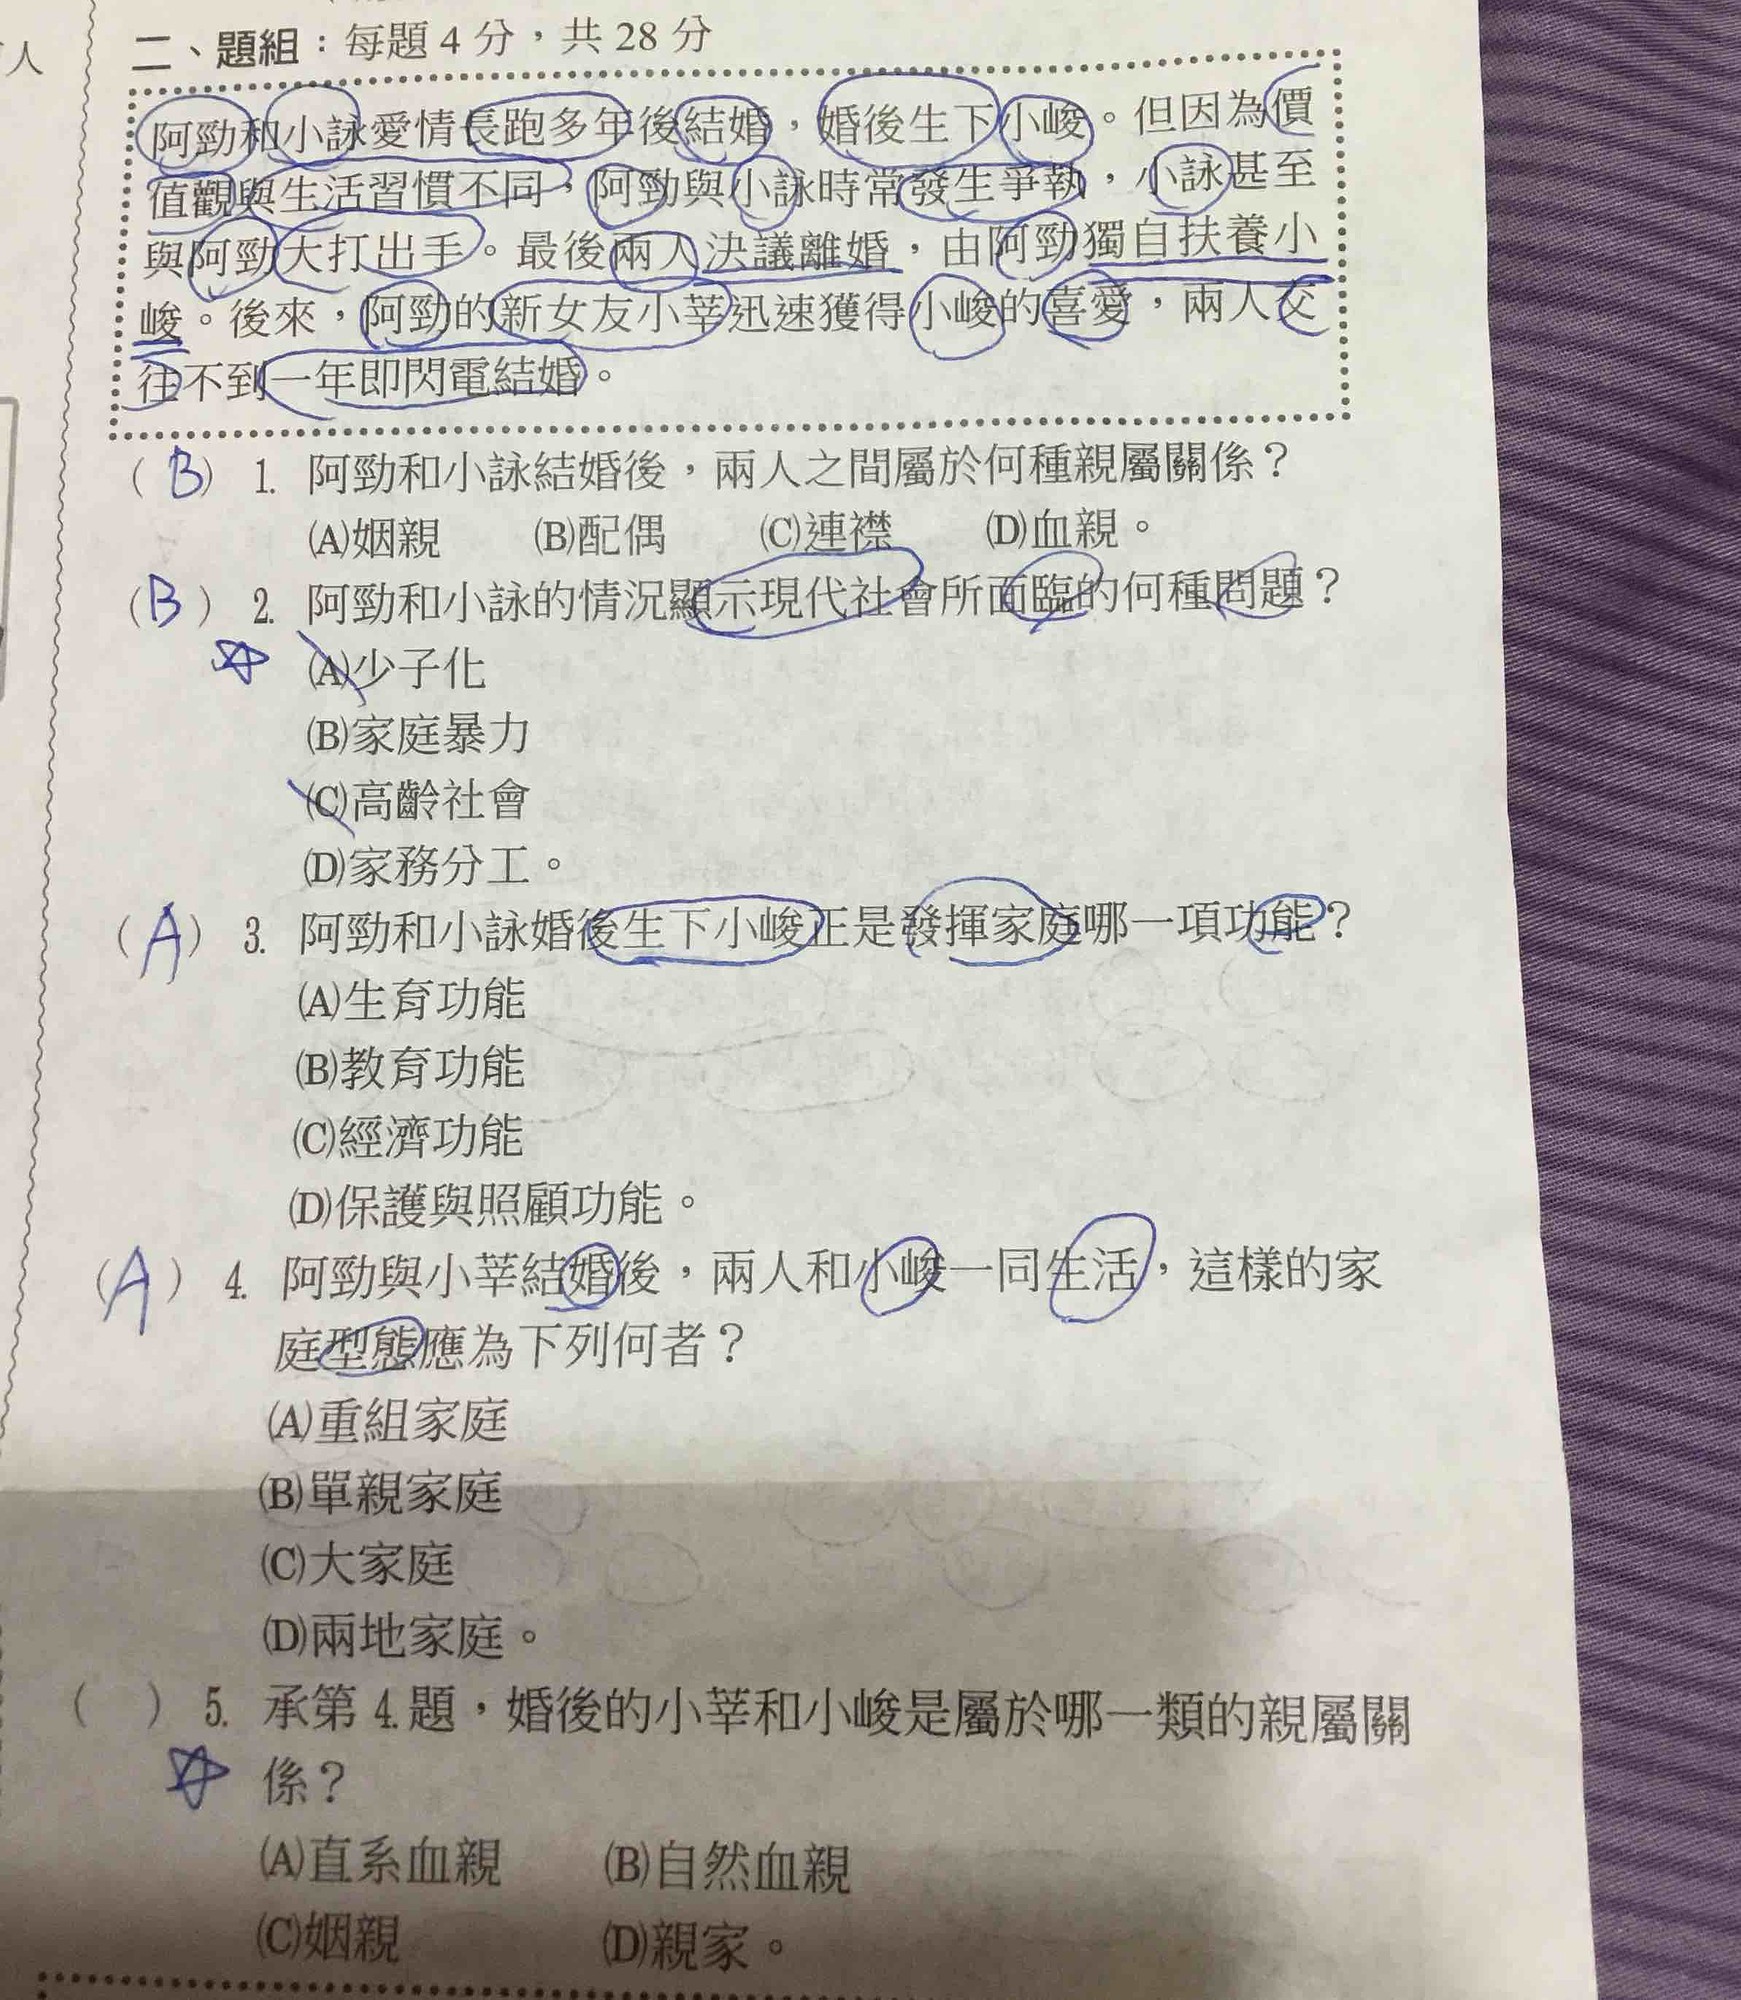 人
二、題組：每題4分，共28分
阿勁和小詠愛情長跑多年後結婚，婚後生下小峻。但因為價
值觀與生活習慣不同，阿勁與小詠時常發生爭執，小詠甚至
與阿勁大打出手。最後兩人決議離婚，由阿勁獨自扶養小
峻。後來，阿勁的新女友小莘迅速獲得小峻的喜愛，兩人交
往不到一年即閃電結婚。
(B) 1. 阿勁和小詠結婚後，兩人之間屬於何種親屬關係？
(A)姻親 (B)配偶 (C)連襟 (D)血親。
(B) 2. 阿勁和小詠的情況顯示現代社會所面臨的何種問題？
(A)少子化
(B)家庭暴力
(C)高齡社會
(D)家務分工。
(A) 3. 阿勁和小詠婚後生下小峻正是發揮家庭哪一項功能？
(A)生育功能
(B)教育功能
(C)經濟功能
(D)保護與照顧功能。
(A) 4. 阿勁與小莘結婚後，兩人和小峻一同生活，這樣的家
庭型態應為下列何者？
(A)重組家庭
(B)單親家庭
(C)大家庭
(D)兩地家庭。
( ) 5. 承第4.題，婚後的小莘和小峻是屬於哪一類的親屬關
係？
(A)直系血親 (B)自然血親
(C)姻親 (D)親家。